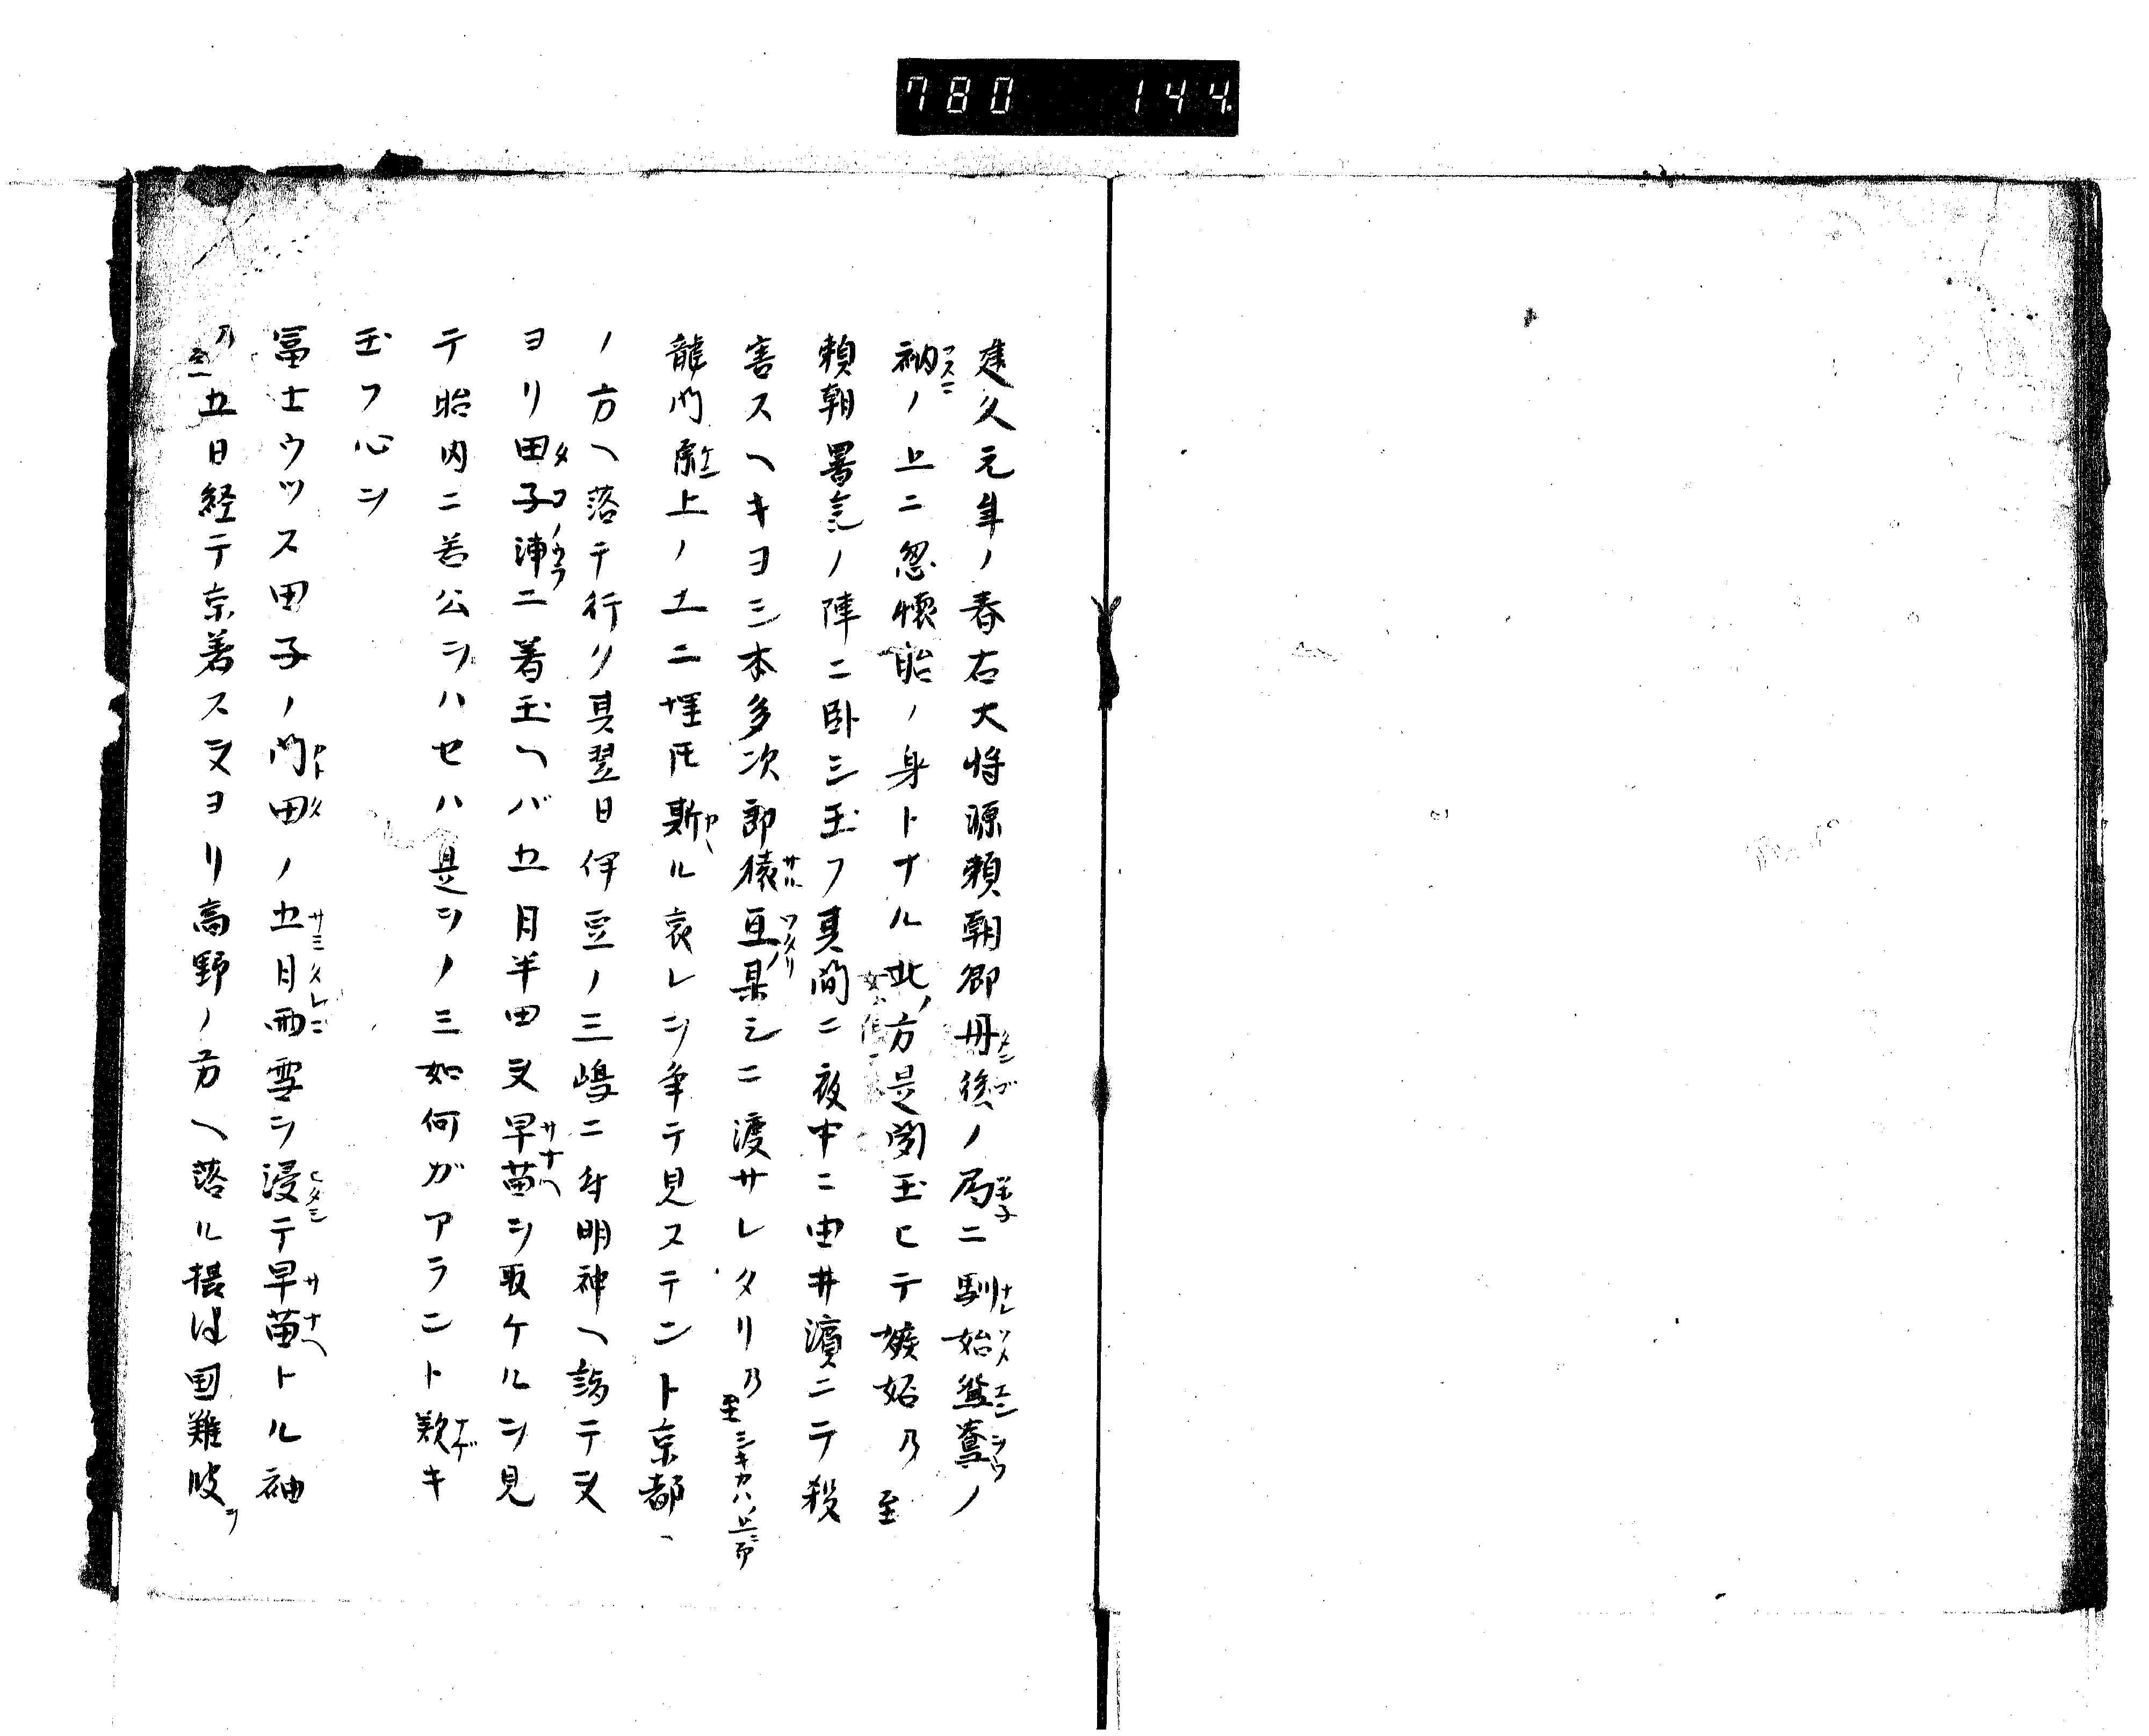 780 144
建久元年ノ春右大将源頼朝卿丹後ノ局ニ馴始鴛鴦ノ
衲ノ上ニ忽懐胎ノ身トナル北ノ方是聞玉ヒテ嫉妬乃至
頼朝暑気ノ陣ニ臥シ玉フ其間ニ夜中ニ由井濱ニテ殺
害スヘキヨシ本多次郎猿亘某シニ渡サレタリ乃至
龍門上ノ土ニ埋氏斯ル哀レヲ争テ見ステント京都ヘ
ノ方ヘ落テ行リ其翌日伊豆ノ三嶋ニ着明神ヘ詣テ又
ヨリ田子浦ニ着玉ヘバ五月半田又早苗ヲ取ケルヲ見
テ胎内ニ若公ヲハセハ是ヲノミ如何ガアラント歎キ
玉フ心ヲ
冨士ウツス田子ノ門田ノ五月雨雪ヲ浸テ早苗トル袖
乃至五日経テ京着ス又ヨリ高野ノ方ヘ落ル摂津国難波ヲ